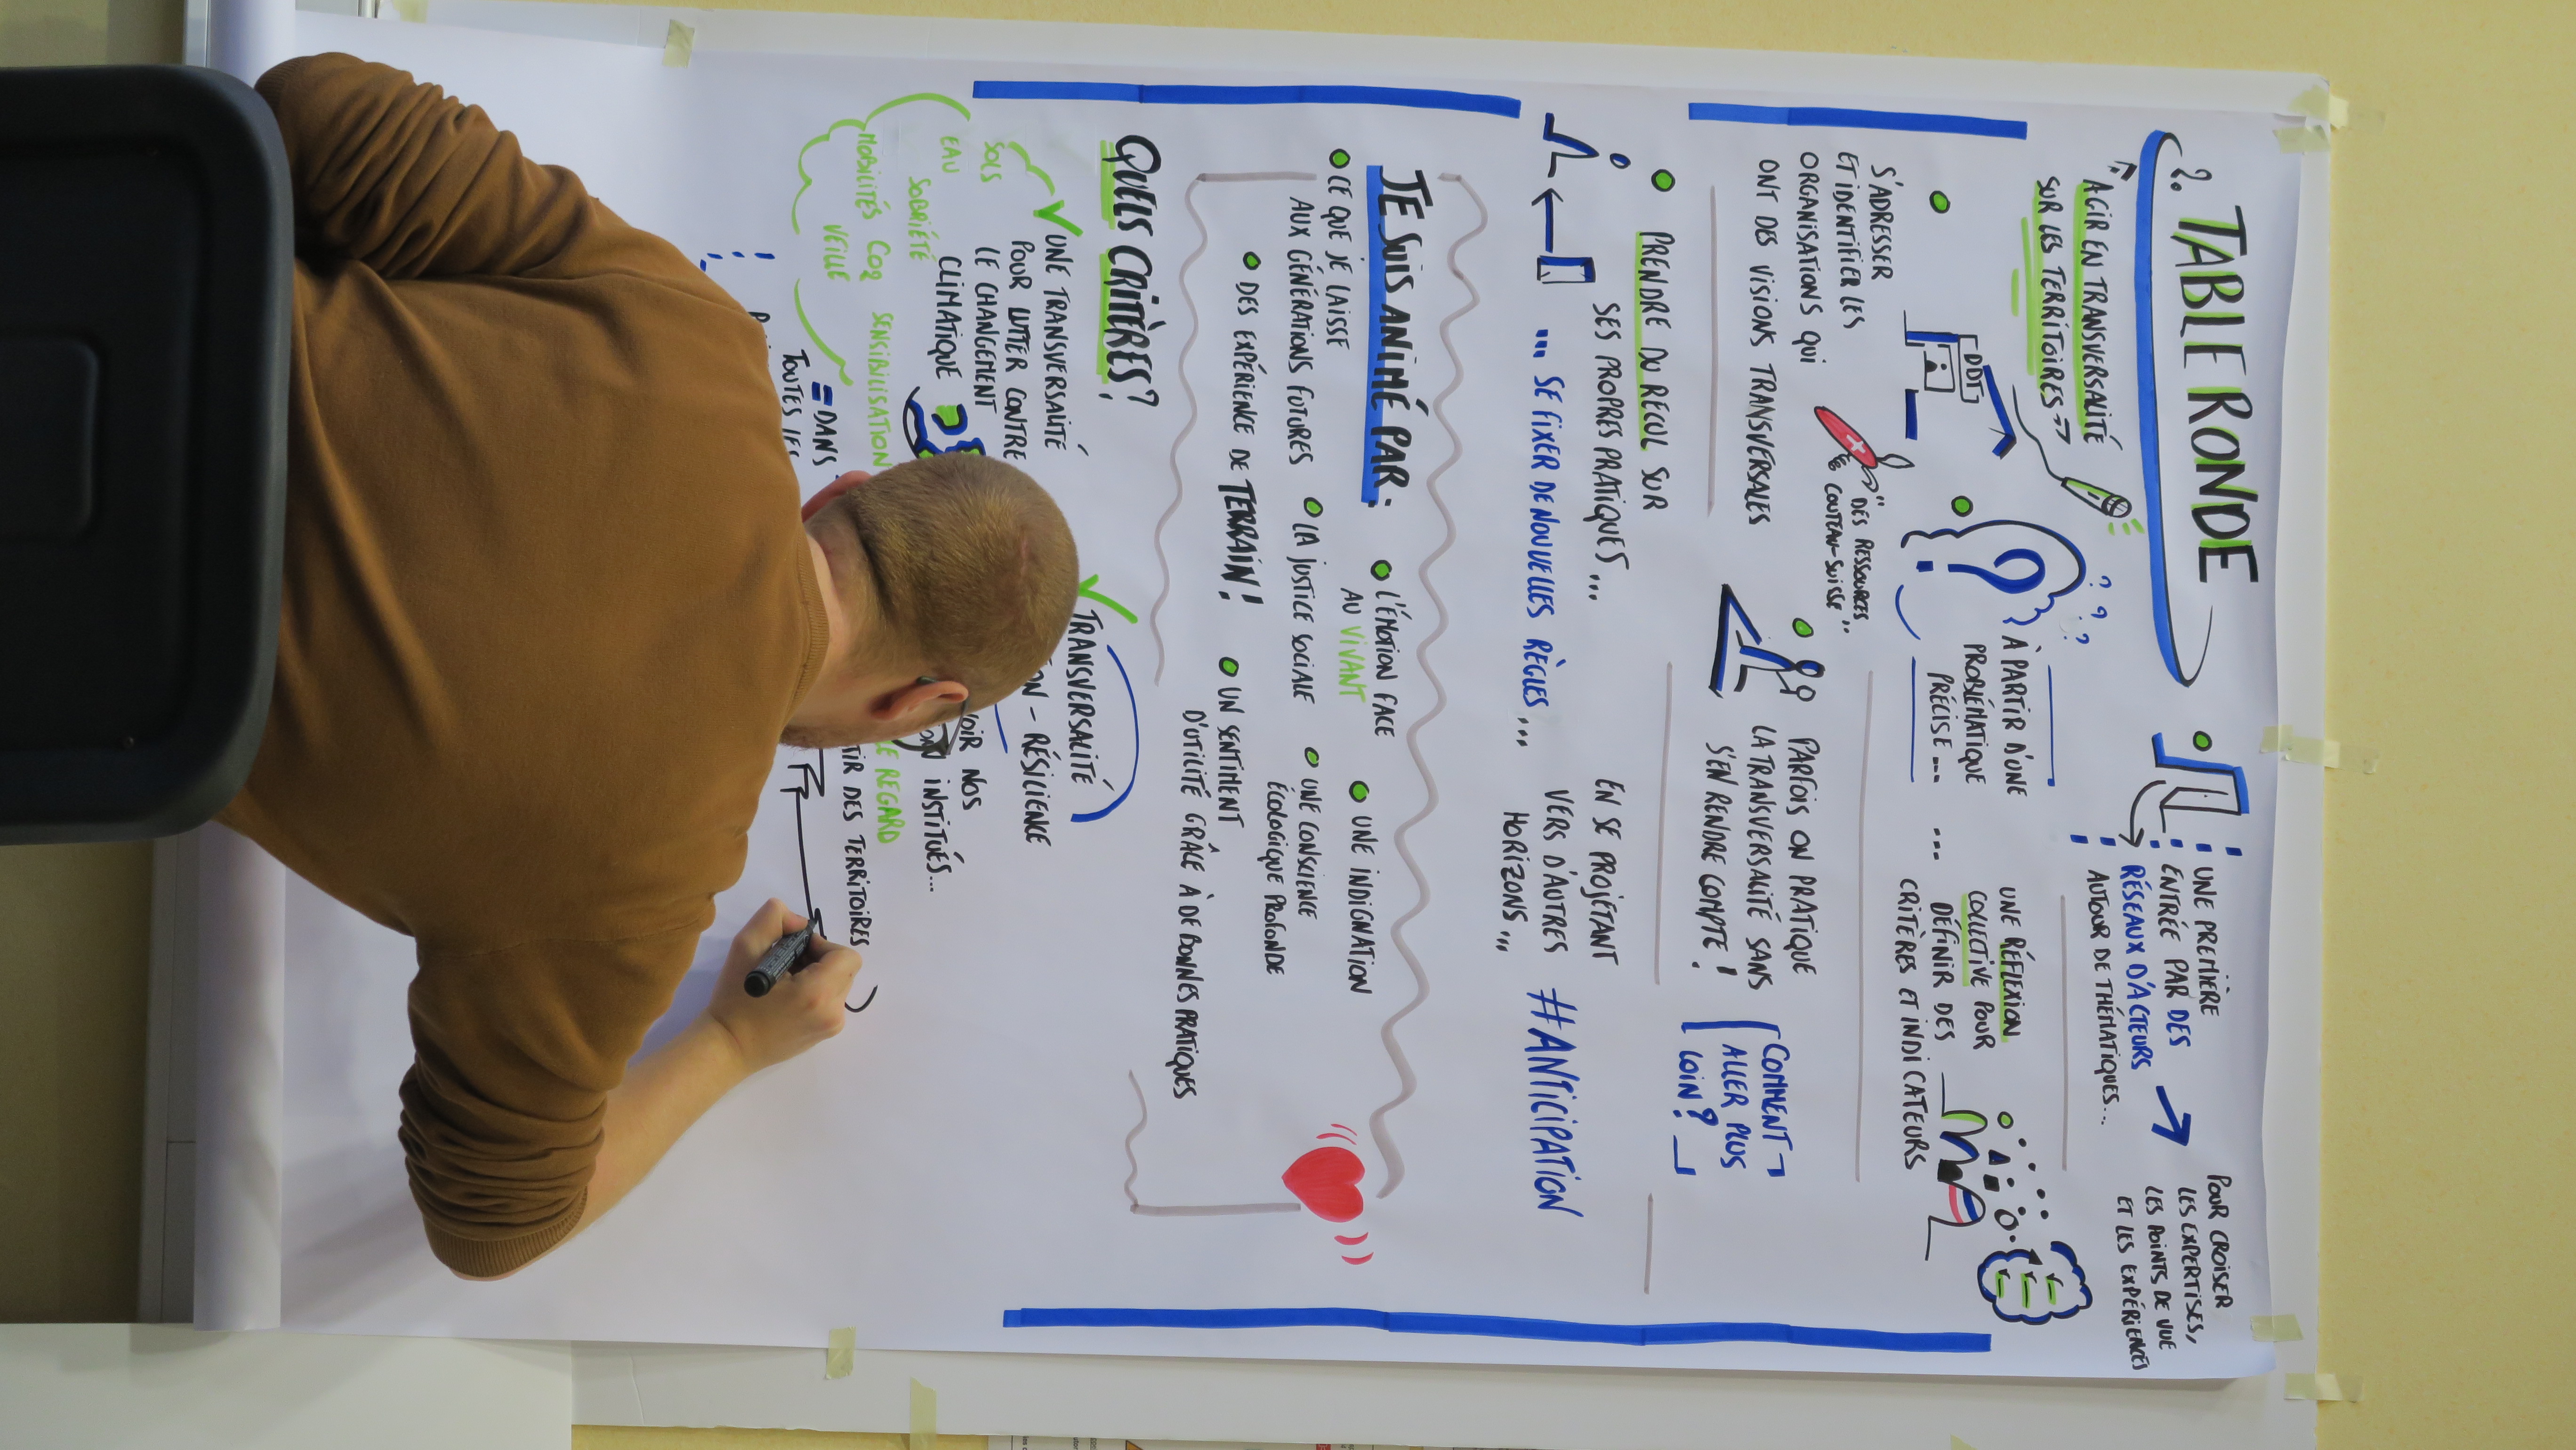 2. TABLE RONDE
AGIR EN TRANSVERSALITÉ
SUR LES TERRITOIRES
UNE PREMIÈRE
ENTRÉE PAR DES
RÉSEAUX D'ACTEURS
AUTOUR DE THÉMATIQUES...
POUR CROISER
LES EXPERTISES,
LES POINTS DE VUE
ET LES EXPÉRIENCES
DDT
S'ADRESSER
ET IDENTIFIER LES
ORGANISATIONS QUI
ONT DES VISIONS TRANSVERSALES
"DES RESSOURCES
COUTEAU-SUISSE"
?
? ? ?
À PARTIR D'UNE
PROBLÉMATIQUE
PRÉCISE ...
... UNE RÉFLEXION
COLLECTIVE POUR
DÉFINIR DES
CRITÈRES ET INDICATEURS
PARFOIS ON PRATIQUE
LA TRANSVERSALITÉ SANS
S'EN RENDRE COMPTE !
COMMENT
ALLER PLUS
LOIN ?
PRENDRE DU RECUL SUR
SES PROPRES PRATIQUES ...
... SE FIXER DE NOUVELLES RÈGLES ...
EN SE PROJETANT
VERS D'AUTRES
HORIZONS ...
#ANTICIPATION
JE SUIS ANIMÉ PAR :
CE QUE JE LAISSE
AUX GÉNÉRATIONS FUTURES
L'ÉMOTION FACE
AU VIVANT
UNE INDIGNATION
LA JUSTICE SOCIALE
UNE CONSCIENCE
ÉCOLOGIQUE PROFONDE
DES EXPÉRIENCE DE TERRAIN !
UN SENTIMENT
D'UTILITÉ GRÂCE À DE BONNES PRATIQUES
QUELS CRITÈRES ?
UNE TRANSVERSALITÉ
POUR LUTTER CONTRE
LE CHANGEMENT
CLIMATIQUE
SOLS
EAU
SOBRIÉTÉ
MOBILITÉS CO2 SENSIBILISATION
VEILLE
= DANS
TOUTES LES
TRANSVERSALITÉ
- RÉSILIENCE
NOS
INSTITUÉS...
LE REGARD
DES TERRITOIRES